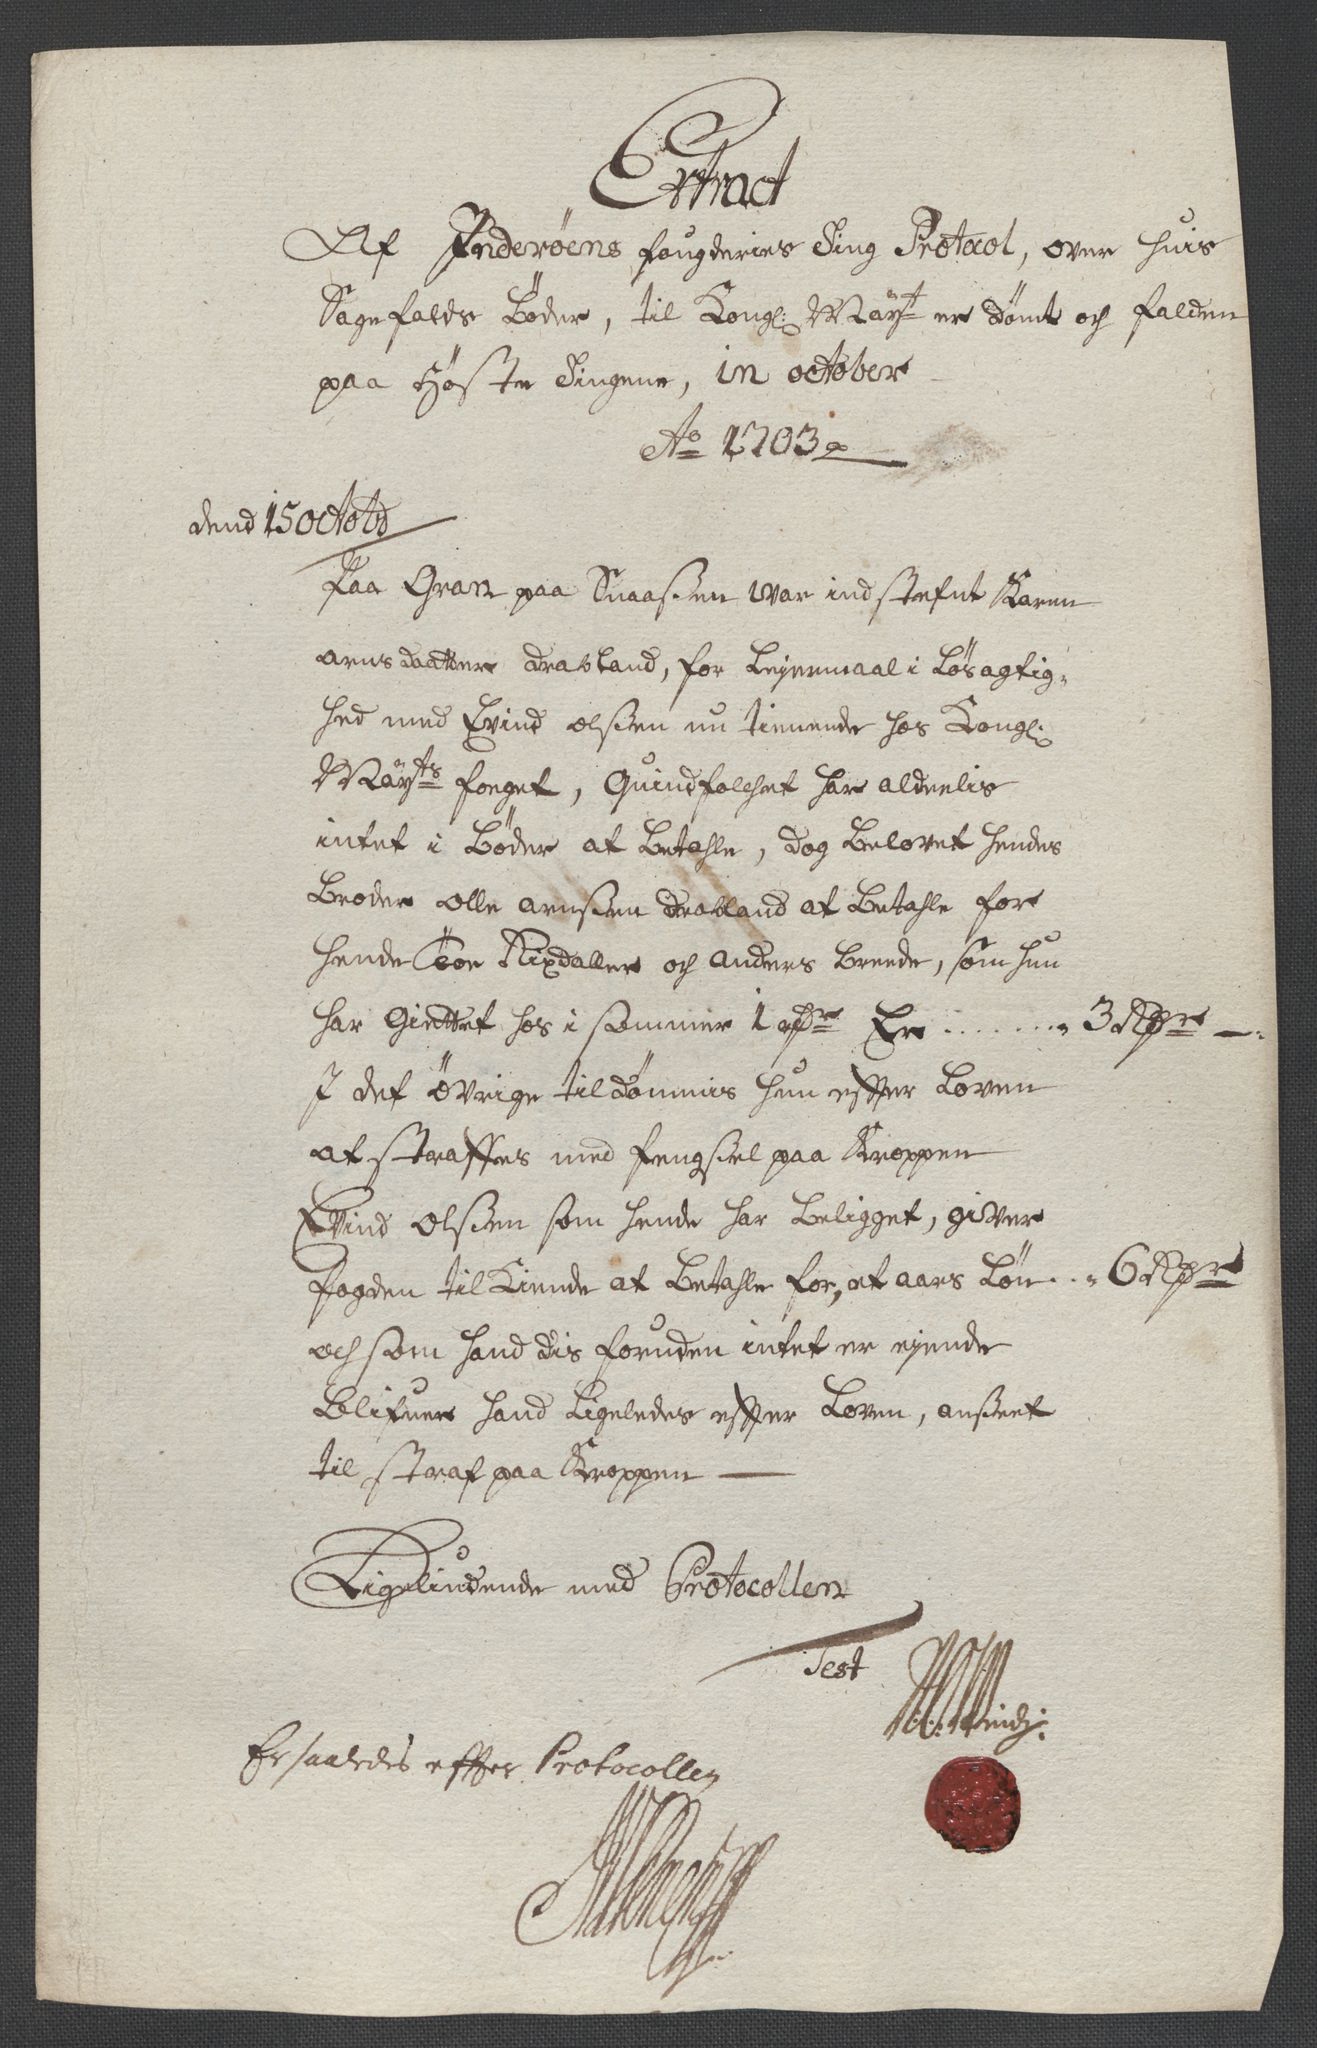 Extract
Af Inderöens fougderies Ting Protocol, over huis
Sagefalds Böder, til Kongl: Mayt er dömt och falden
paa Höste Tingene, in october
Ao 1703
dend 15 octobr
Paa Gran paa Snaasen war indstefnt Karen
arnsdaatter dravland, for Leyermaal i Lösagtig-
hed med Evind olsen nu tienende hos Kongl:
Mayts foeget, Quindfolchet har aldeelis
intet i Böder at betahle, dog belovet hendes
Broder olle arnsen dravland at betahle for
hende toe Rixdaller och anders Breede, som hun
har giettet hos i sommer 1 rdr Er ...... 3 Rdr —
I det övrige tildömmis hun efter Loven
at straffes med fengsel paa Kroppen
Evind olsen som hende har beligget, giver
fogden tilkiende at betahle for, et aars Lön .. 6 Rdr
och som hand dis foruden intet er ejende
blifuer hand Ligeledes efter Loven, anseet
til straf paa Kroppen —
Ligeliudende med Protocollen
Test
Er saaledis efter Protocollen